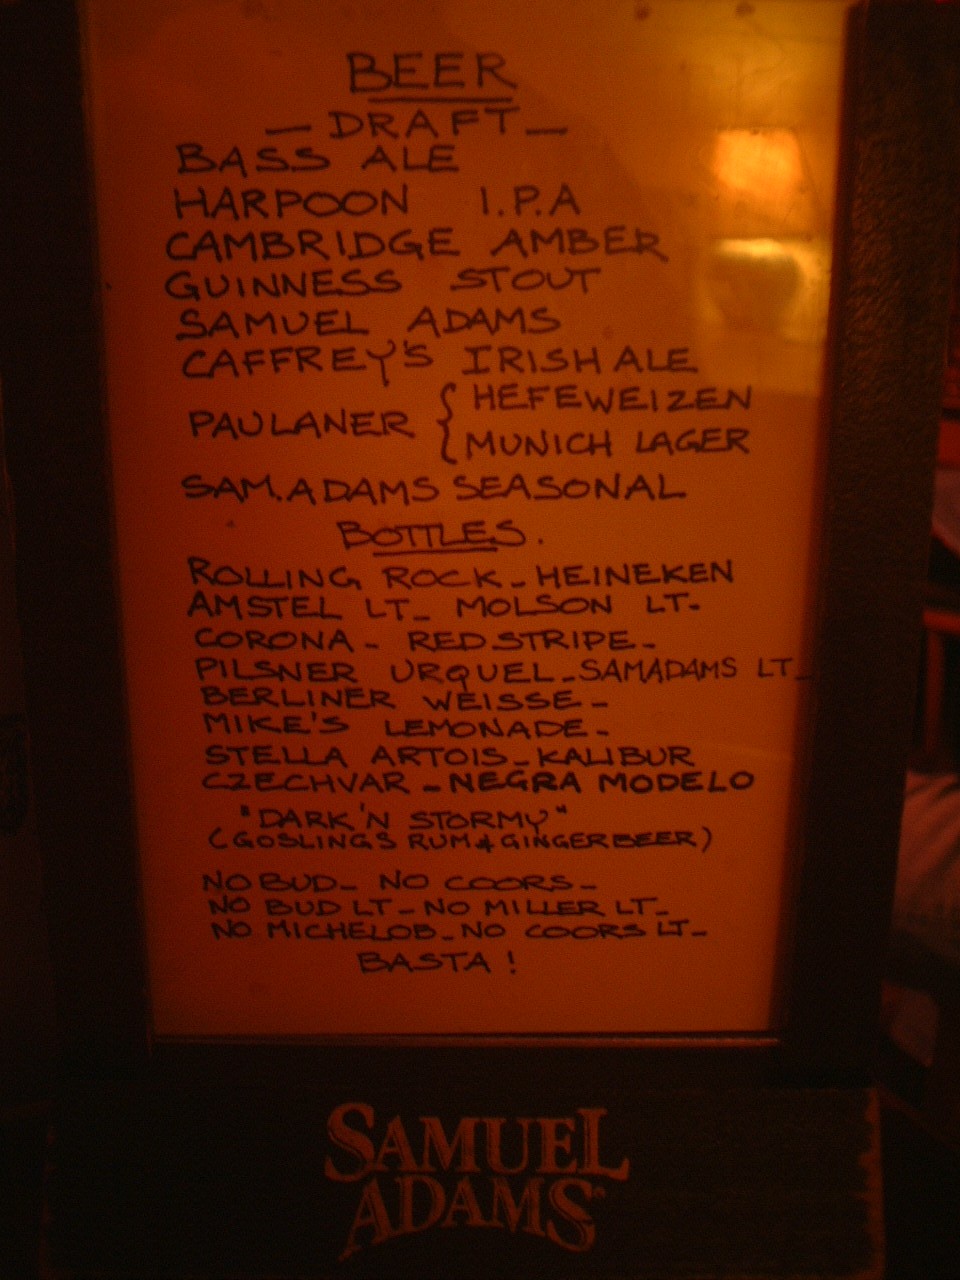 BEER
- DRAFT -
BASS ALE
HARPOON I.P.A
CAMBRIDGE AMBER
GUINNESS STOUT
SAMUEL ADAMS
CAFFREY'S IRISH ALE
PAULANER { HEFEWEIZEN
MUNICH LAGER
SAM.ADAMS SEASONAL
BOTTLES.
ROLLING ROCK - HEINEKEN
AMSTEL LT - MOLSON LT -
CORONA - RED STRIPE -
PILSNER URQUEL - SAM ADAMS LT -
BERLINER WEISSE -
MIKE'S LEMONADE -
STELLA ARTOIS - KALIBUR
CZECHVAR - NEGRA MODELO
"DARK 'N STORMY"
(GOSLINGS RUM & GINGER BEER)
NO BUD - NO COORS -
NO BUD LT - NO MILLER LT -
NO MICHELOB - NO COORS LT -
BASTA !
SAMUEL
ADAMS